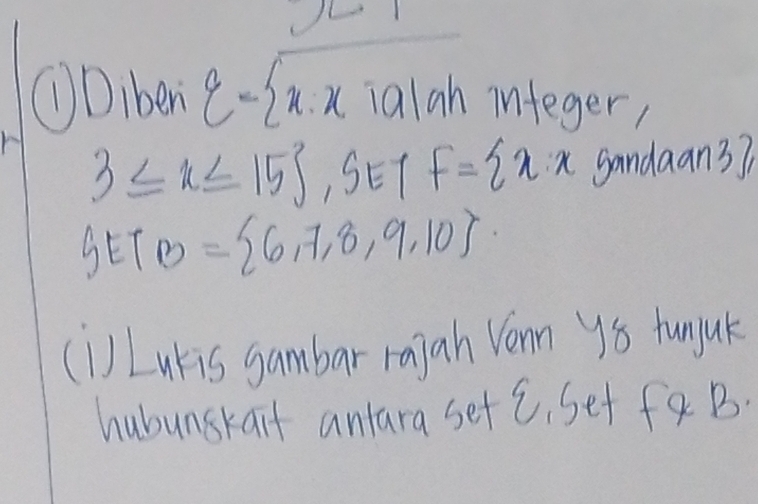 SET
① Diberi ξ = {x : x ialah integer,
3 ≤ x ≤ 15}, SET F = {x : x gandaan 3},
SET B = {6, 7, 8, 9, 10}.
(i) Lukis gambar rajah Venn yg tunjuk
hubungkait antara set ξ, set F & B.